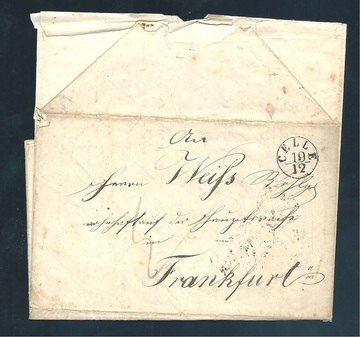 An
CELLE
19
12
Herrn Weiß
der Hauptwache
in
Frankfurt a/m